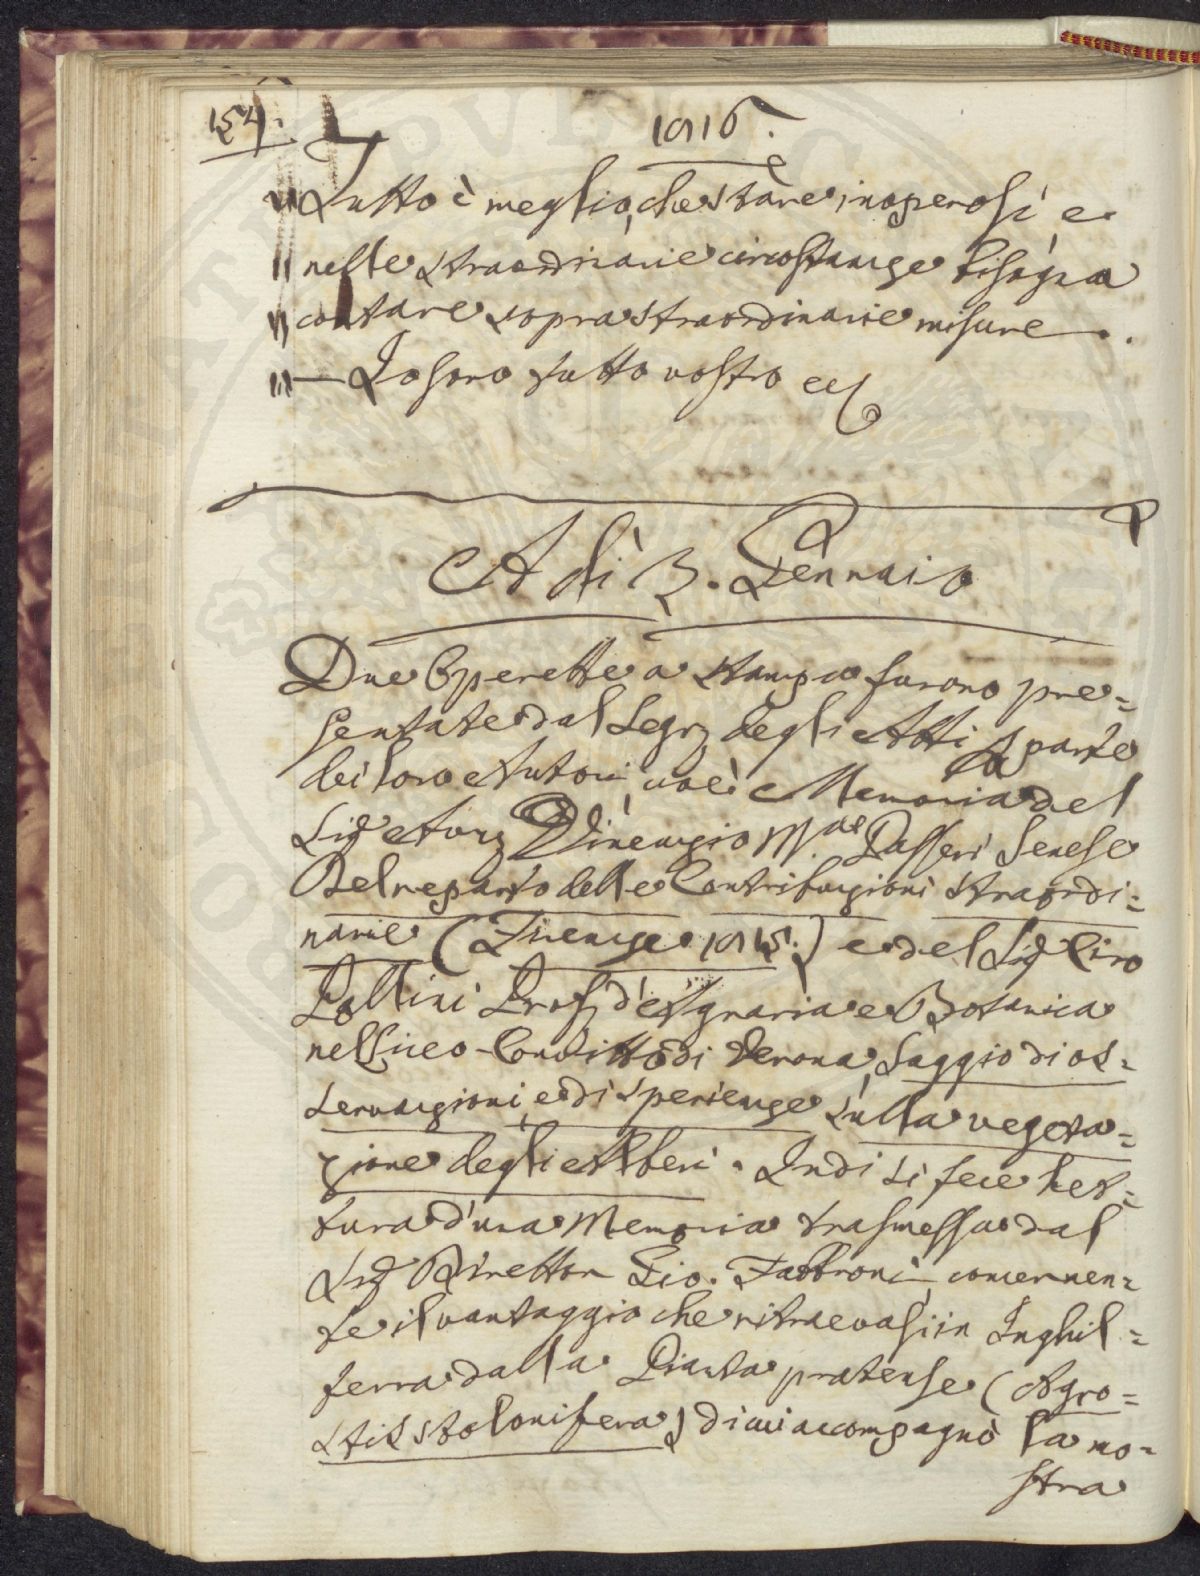 154.
1816.
„ Tutto è meglio, che stare inoperosi, e
„ nelle straordinarie circostanze bisogna
„ contare sopra straordinarie misure.
„ — Io sono tutto vostro ec
A dì 3. Gennaio
Due Operette a stampa furono pre=
sentate dal Segr degli Atti a parte
dei loro Autori, cioè Memoria del
Sig Avv Vincenzio Mae Passeri Senese
Del reparto delle Contribuzioni straordi=
narie (Firenze 1815.) e del Sig Ciro
Pollini Prof d'Agraria e Botanica
nel Liceo-Convitto di Verona, Saggio di os=
servazioni, e di sperienze sulla vegeta=
zione degli Alberi. Indi si fece let=
tura d'una Memoria trasmessa dal
Sig Direttor Gio. Fabbroni concernen=
te il vantaggio che ritraevasi in Inghil=
terra dalla Pianta pratense (Agro=
stis stolonifera) di cui accompagnò la no=
stra